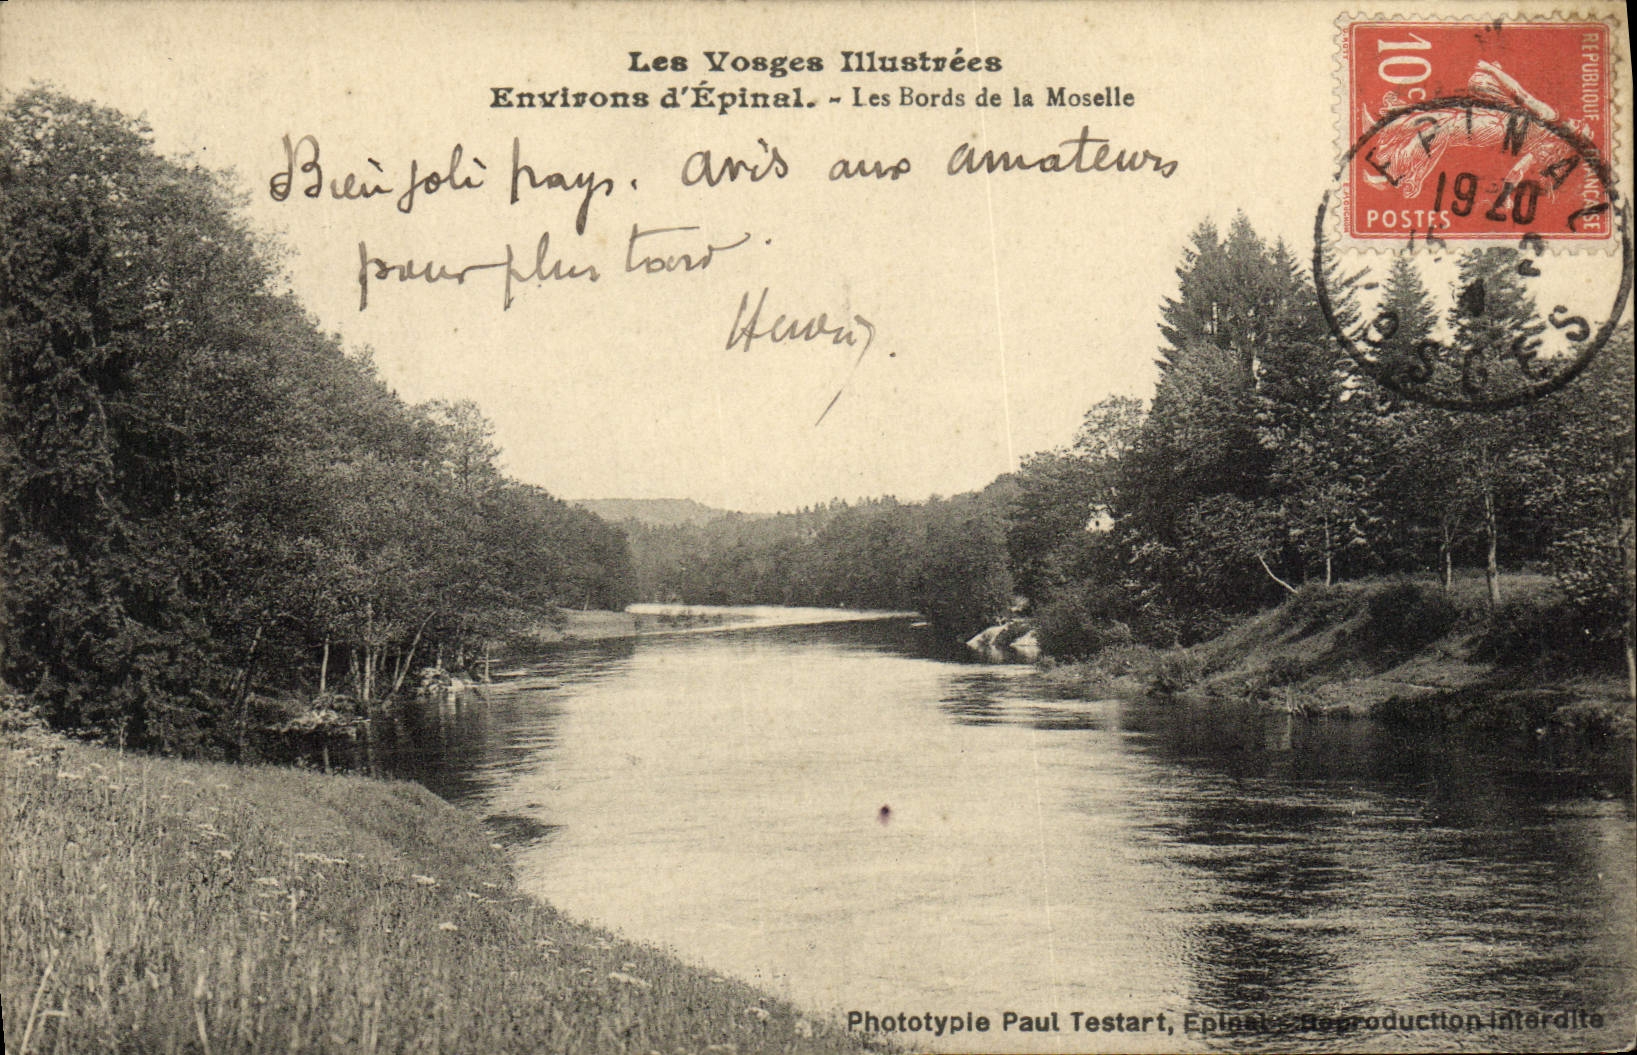 Les Vosges Illustrées
Environs d'Épinal. - Les Bords de la Moselle
Bien joli pays. avis aux amateurs
pour plus tard.
Henri.
10c
REPUBLIQUE FRANÇAISE
POSTES
EPINAL
1920
VOSGES
Phototypie Paul Testart, Epinal - Reproduction interdite